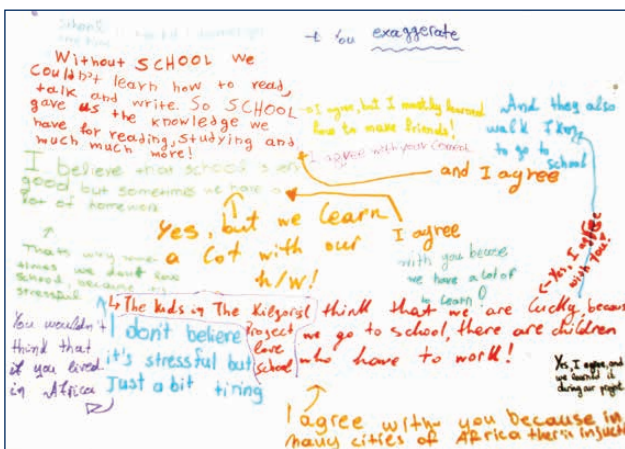 School
→ You exaggerate
Without SCHOOL we
couldn't learn how to read,
talk and write. So SCHOOL
gave us the knowledge we
have for reading, studying and
much much more!
→ I agree, but I mostly learned
how to make friends!
I agree with your comment
And they also
walk 7km
to go to
school
and I agree
I believe that school is very
good but sometimes we have a
lot of homework
Yes, but we learn
a lot with our
h/w!
I agree
with you because
we have a lot of
to learn!
Thats why some
times we don't love
school, because its
stressful
← Yes, I agree
with you!
↳ The kids in The Kilgoris
project
love
school
think that we are lucky, because
we go to school, there are children
who have to work!
You wouldn't
think that
if you lived
in Africa
I don't believe
it's stressful but
Just a bit tiring
Yes, I agree, and
we learned it
during our project
I agree with you because in
many cities of Africa there is